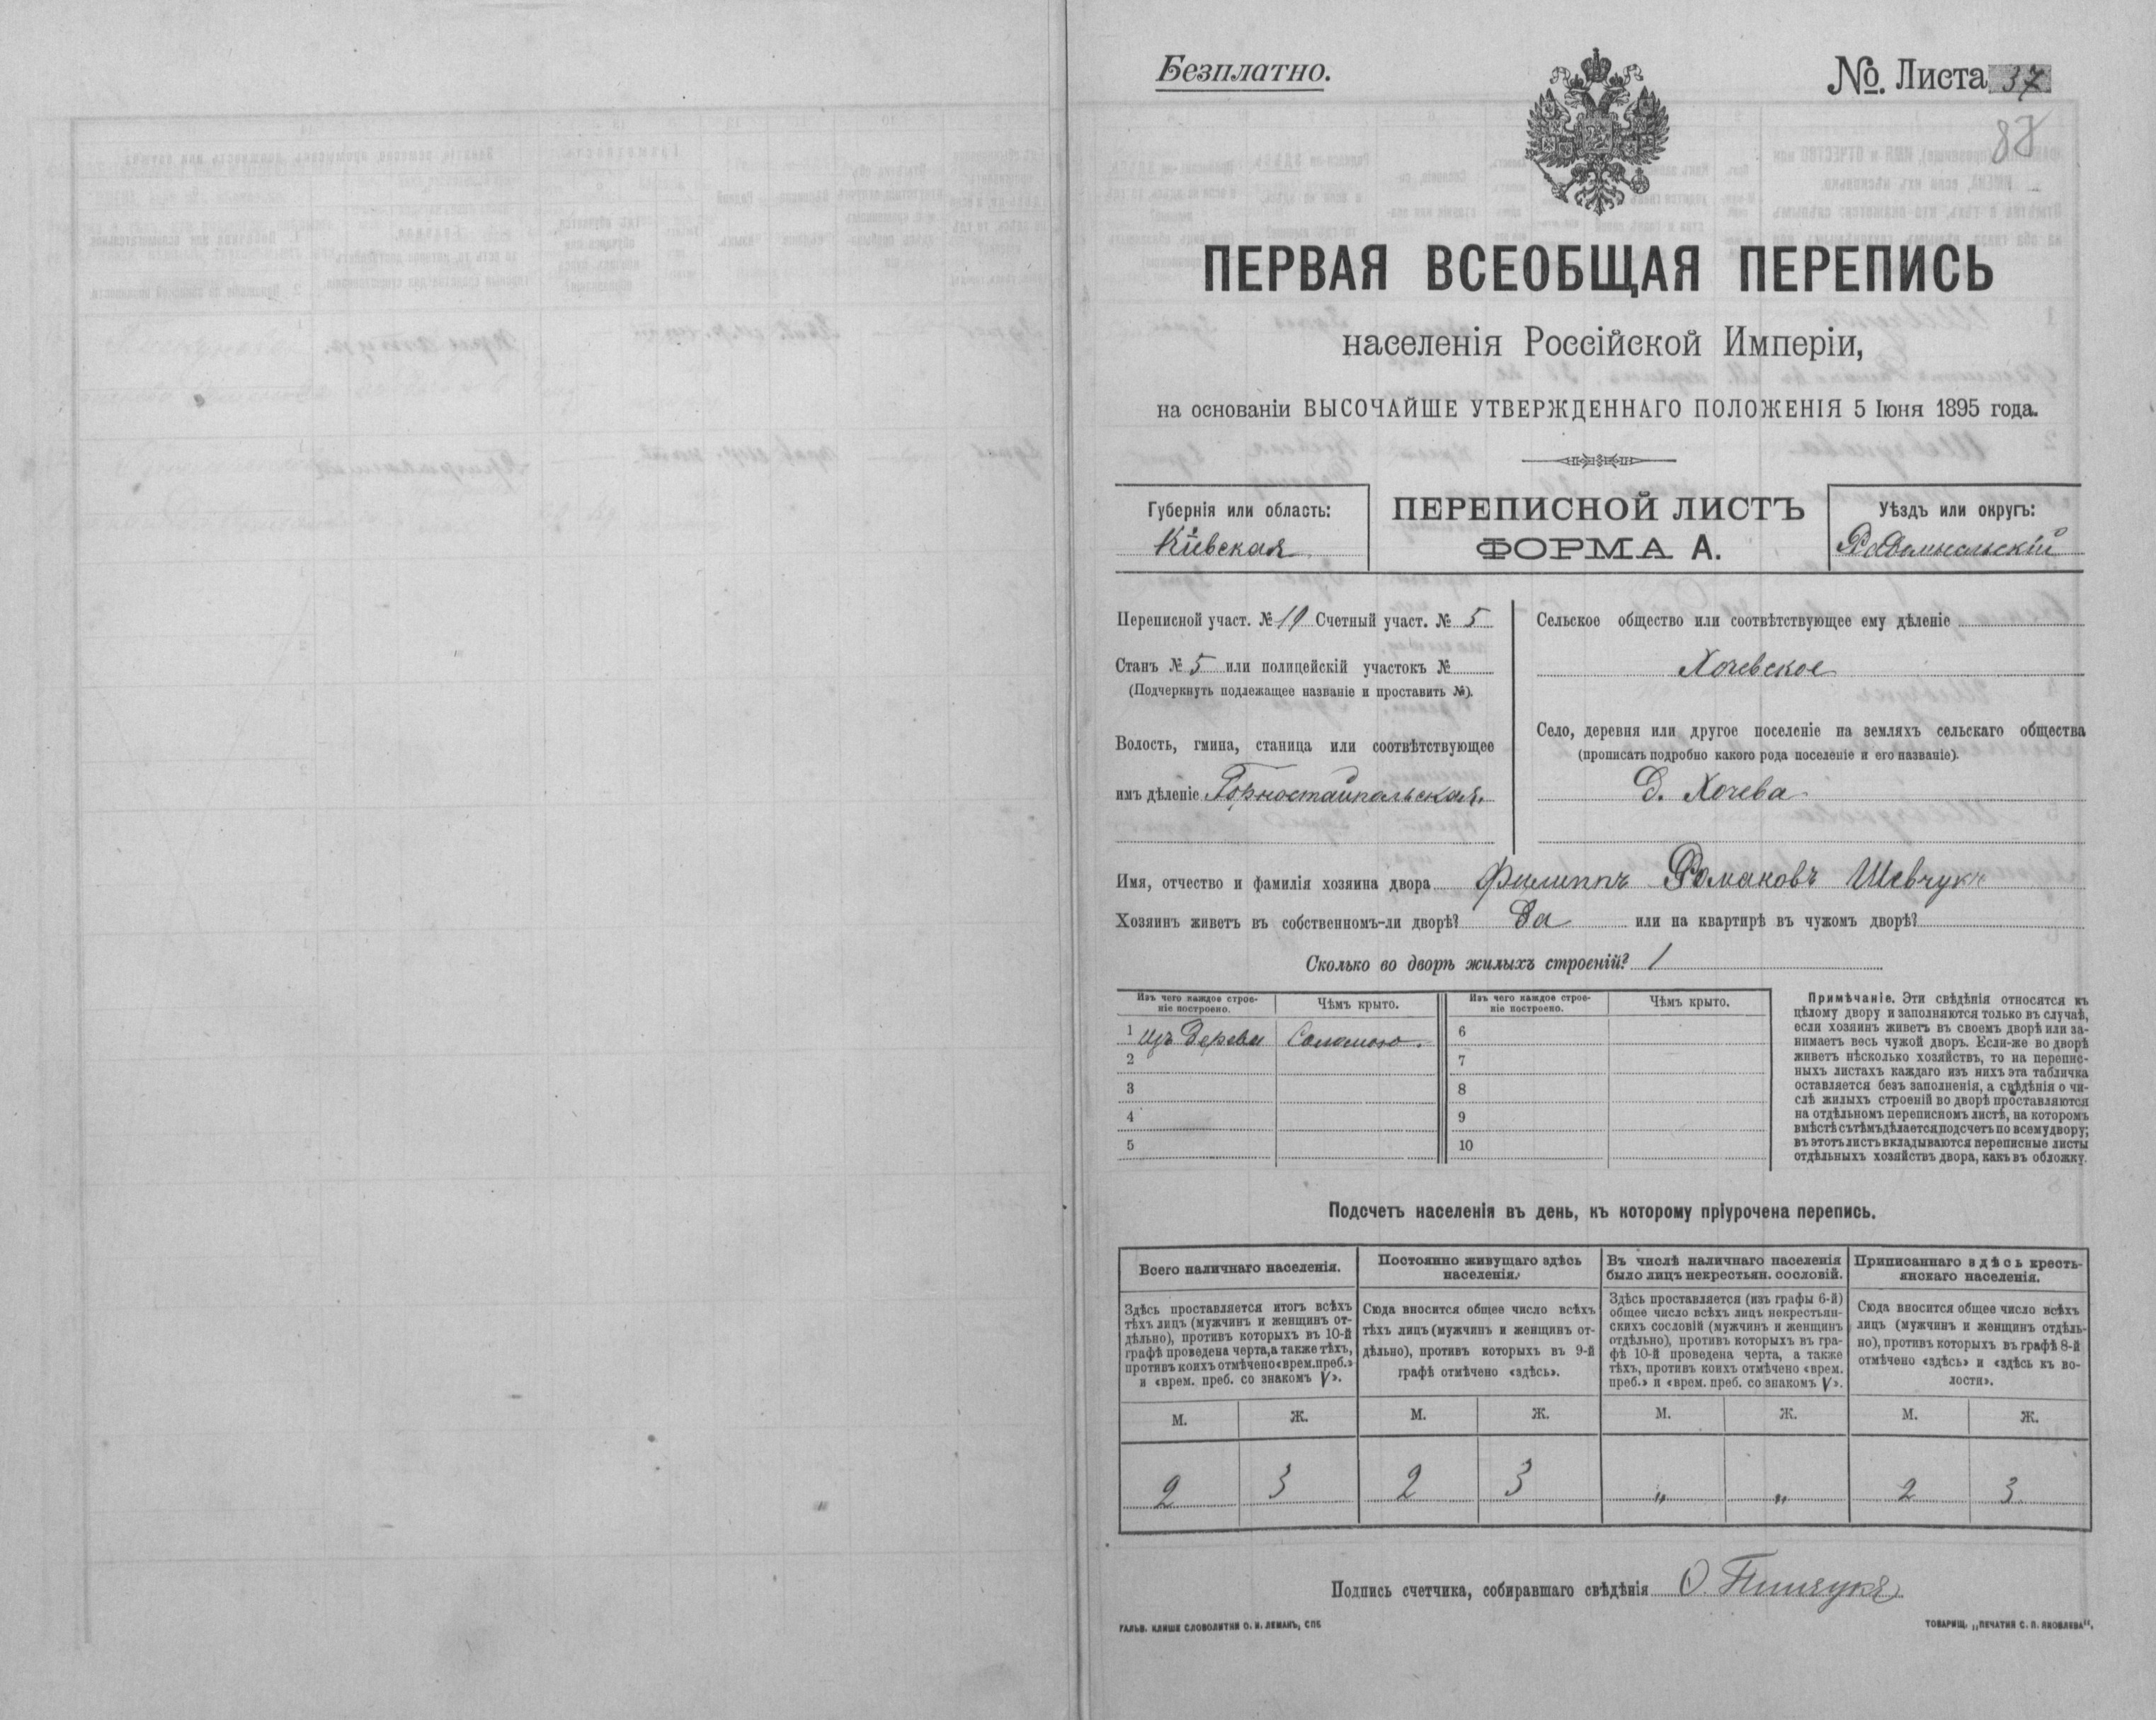 Безплатно.
№. Листа 37
88
ПЕРВАЯ ВСЕОБЩАЯ ПЕРЕПИСЬ
населенія Россійской Имперіи,
на основаніи ВЫСОЧАЙШЕ УТВЕРЖДЕННАГО ПОЛОЖЕНІЯ 5 Іюня 1895 года.
Губернія или область:
Кіевская
ПЕРЕПИСНОЙ ЛИСТЪ
ФОРМА А.
Уѣздъ или округъ:
Радомысльскій
Переписной участ. № 19 Счетный участ. № 5
Станъ № 5 или полицейскій участокъ №
(Подчеркнуть подлежащее названіе и проставить №).
Волость, гмина, станица или соотвѣтствующее
имъ дѣленіе Горностайпольская.
Сельское общество или соотвѣтствующее ему дѣленіе
Хочевское
Село, деревня или другое поселеніе на земляхъ сельскаго общества
(прописать подробно какого рода поселеніе и его названіе).
Д. Хочева
Имя, отчество и фамилія хозяина двора Филиппъ Романовъ Шевчукъ
Хозяинъ живетъ въ собственномъ-ли дворѣ? Да или на квартирѣ въ чужомъ дворѣ?
Сколько во дворѣ жилыхъ строеній? 1
Изъ чего каждое строе-
ніе построено.
Чѣмъ крыто.
Изъ чего каждое строе-
ніе построено.
Чѣмъ крыто.
1 изъ дерева Соломою. 6
2 7
3 8
4 9
5 10
Примѣчаніе. Эти свѣдѣнія относятся къ
цѣлому двору и заполняются только въ случаѣ,
если хозяинъ живетъ въ своемъ дворѣ или за-
нимаетъ весь чужой дворъ. Если-же во дворѣ
живетъ нѣсколько хозяйствъ, то на перепис-
ныхъ листахъ каждаго изъ нихъ эта табличка
оставляется безъ заполненія, а свѣдѣнія о чи-
слѣ жилыхъ строеній во дворѣ проставляются
на отдѣльномъ переписномъ листѣ, на которомъ
вмѣстѣ съ тѣмъ дѣлается подсчетъ по всему двору;
въ этотъ листъ вкладываются переписные листы
отдѣльныхъ хозяйствъ двора, какъ въ обложку.
Подсчетъ населенія въ день, къ которому пріурочена перепись.
Всего наличнаго населенія.
Здѣсь проставляется итогъ всѣхъ
тѣхъ лицъ (мужчинъ и женщинъ от-
дѣльно), противъ которыхъ въ 10-й
графѣ проведена черта, а также тѣхъ,
противъ коихъ отмѣчено «врем. преб.»
и «врем. преб. со знакомъ V».
Постоянно живущаго здѣсь
населенія.
Сюда вносится общее число всѣхъ
тѣхъ лицъ (мужчинъ и женщинъ от-
дѣльно), противъ которыхъ въ 9-й
графѣ отмѣчено «здѣсь».
Въ числѣ наличнаго населенія
было лицъ некрестьян. сословій.
Здѣсь проставляется (изъ графы 6-й)
общее число всѣхъ лицъ некрестьян-
скихъ сословій (мужчинъ и женщинъ
отдѣльно), противъ которыхъ въ гра-
фѣ 10-й проведена черта, а также
тѣхъ, противъ коихъ отмѣчено «врем.
преб.» и «врем. преб. со знакомъ V».
Приписаннаго здѣсь кресть-
янскаго населенія.
Сюда вносится общее число всѣхъ
лицъ (мужчинъ и женщинъ отдѣль-
но), противъ которыхъ въ графѣ 8-й
отмѣчено «здѣсь» и «здѣсь къ во-
лости».
М. Ж. М. Ж. М. Ж. М. Ж.
2 3 2 3 „ „ 2 3
Подпись счетчика, собиравшаго свѣдѣнія О. Пинчукъ
ГАЛЬВ. КЛИШЕ СЛОВОЛИТНИ О. И. ЛЕМАНЪ, СПБ
ТОВАРИЩ. „ПЕЧАТНЯ С. П. ЯКОВЛЕВА".